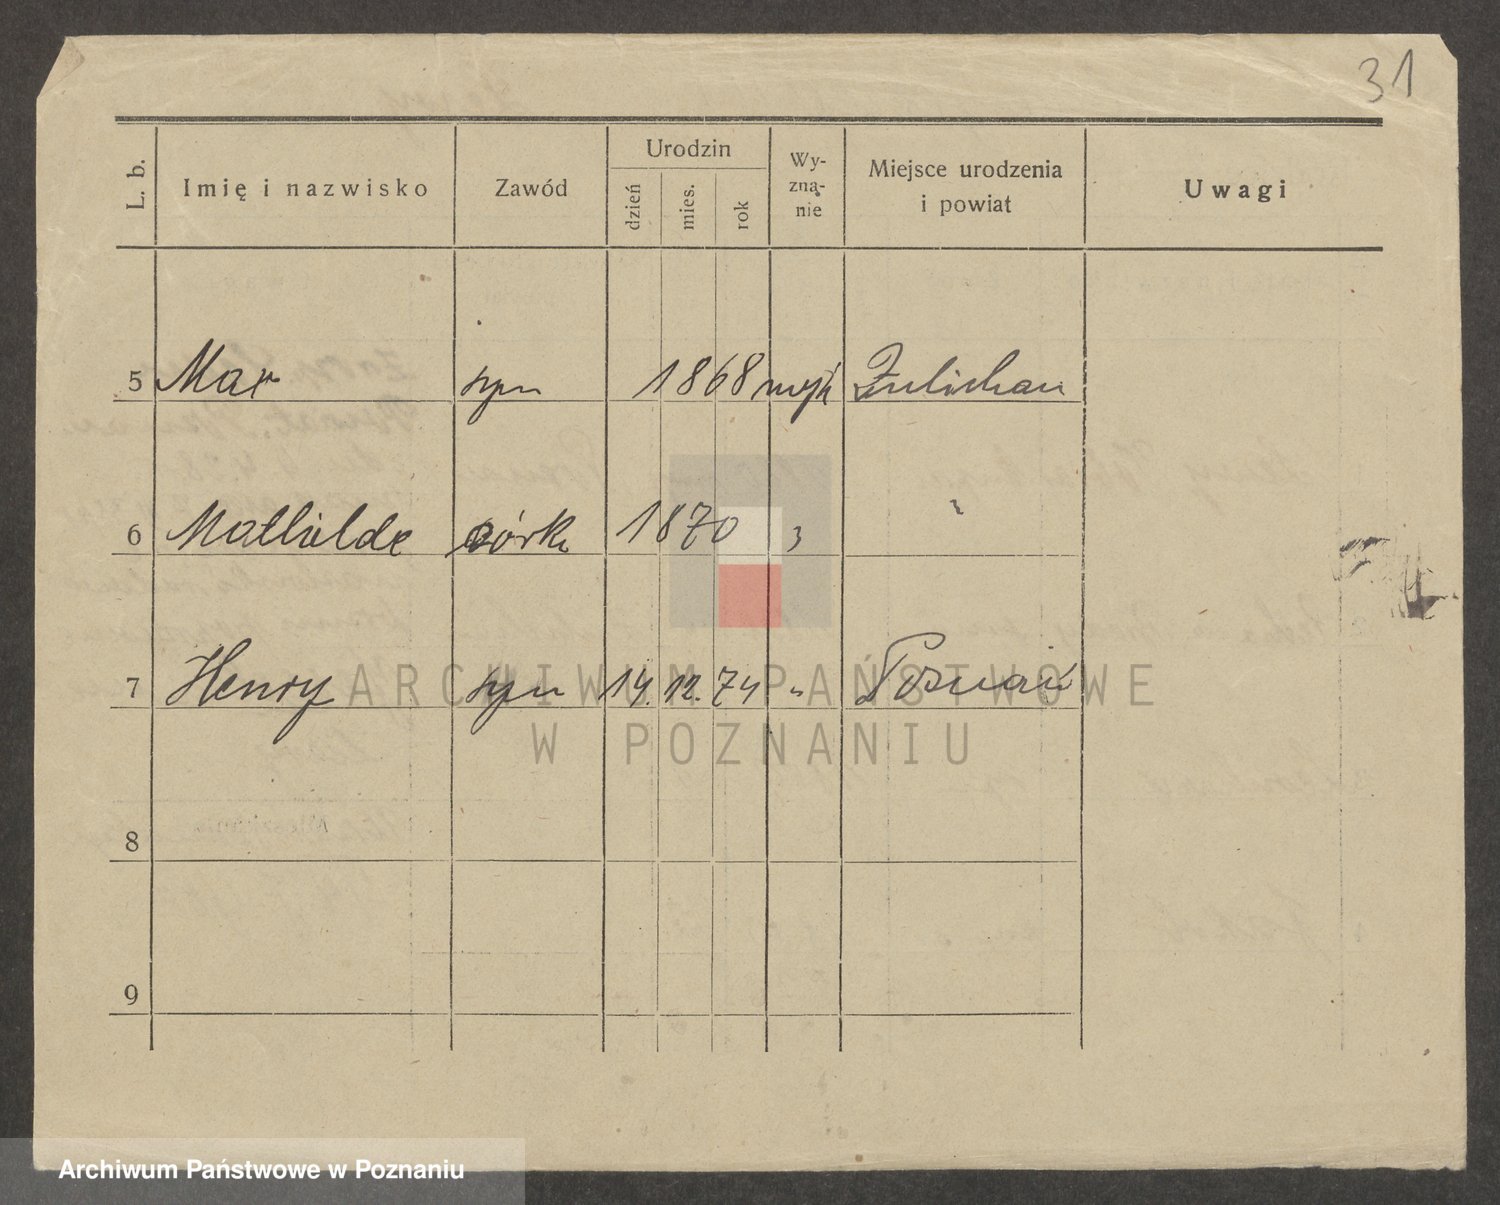 31
L. b.
Imię i nazwisko
Zawód
Urodzin
dzień
mies.
rok
Wy-
zna-
nie
Miejsce urodzenia
i powiat
Uwagi
5 Max syn 1868 mojż Zulichau
6 Mathilde córka 1870 "
7 Henry syn 14. 12. 74 " Poznań
8
9
ARCHIWUM PAŃSTWOWE
W POZNANIU
Archiwum Państwowe w Poznaniu